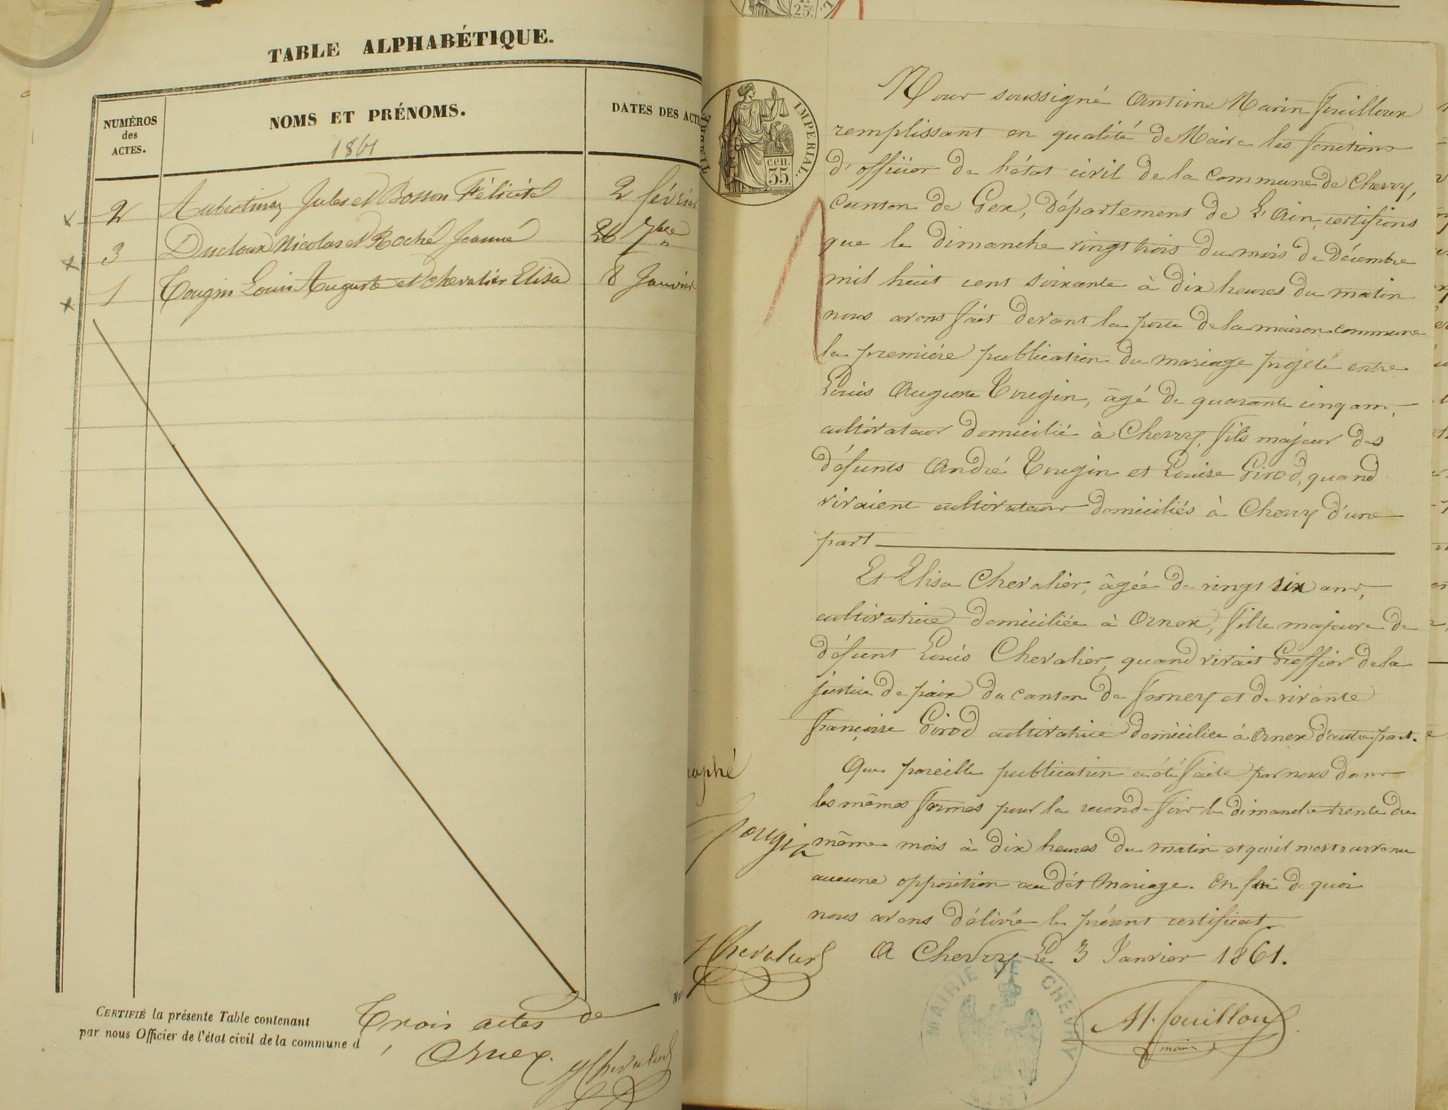 TABLE ALPHABÉTIQUE.
NUMÉROS
des
ACTES.
NOMS ET PRÉNOMS.
1861
DATES DES ACT
2 Jules et Bosson Félicité 2 février
3 Ducloux Nicolas et Roché Jeanne 26 7bre
1 Tougin Louis Auguste et Chevalier Elisa 8 Janvier
CERTIFIÉ la présente Table contenant Trois actes de
par nous Officier de l'état civil de la commune d
Ornex.
Chevalier
25
TIMBRE IMPERIAL
cen.
35
Nous soussigné Antoine Marin Fouilloux
remplissant en qualité de Maire les fonctions
d'officier de l'état civil de la commune de Chevry,
canton de Gex, département de l'Ain certifions
que le dimanche vingt trois du mois de décembre
mil huit cent soixante à dix heures du matin
nous avons fait devant la porte de la maison commune
la première publication du mariage projeté entre
Louis Auguste Tougin, âgé de quarante cinq ans,
cultivateur domicilié à Chevry, fils majeur des
défunts André Tougin et Louise Girod, quand
vivaient cultivateur domiciliés à Chevry d'une
part
Et Elisa Chevalier, âgée de vingt six ans,
cultivatrice domiciliée à Ornex, fille majeure de
défunt Louis Chevalier, quand vivait Greffier de la
justice de paix du canton de Ferney et de vivante
françoise Girod cultivatrice domiciliée à Ornex d'autre part.
Que pareille publication a été faite par nous dans
les mêmes formes pour la seconde fois le dimanche trente du
même mois à dix heures du matin et qu'il n'est survenu
aucune opposition au dit Mariage. En foi de quoi
nous avons délivré le présent certificat.
A Chevry le 3 Janvier 1861.
raphé
Tougin
Chevalier
MAIRIE DE CHEVRY
AIN
M. Fouilloux
maire